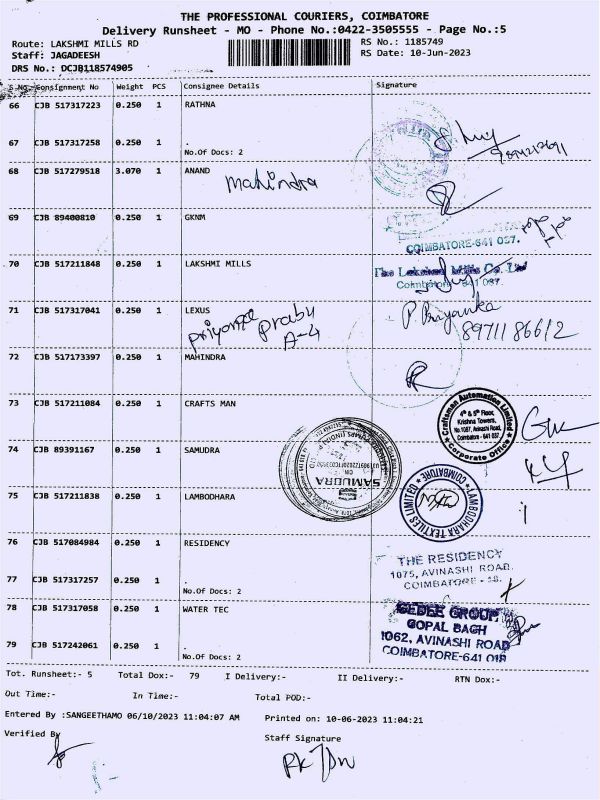 THE PROFESSIONAL COURIERS, COIMBATORE
Delivery Runsheet - MO - Phone No.:0422-3505555 - Page No.:5
Route: LAKSHMI MILLS RD
RS No.: 1185749
Staff: JAGADEESH
RS Date: 10-Jun-2023
DRS No.: DCJB118574905
S.No. Consignment No Weight PCS Consignee Details Signature
66 CJB 517317223 0.250 1 RATHNA
67 CJB 517317258 0.250 1 .
No.Of Docs: 2
68 CJB 517279518 3.070 1 ANAND
Mahindra
69 CJB 89400810 0.250 1 GKNM
COIMBATORE-641 037.
70 CJB 517211848 0.250 1 LAKSHMI MILLS
The Lakshmi Mills Co. Ltd
Coimbatore 641 037.
71 CJB 517317041 0.250 1 LEXUS
Prabu
A-4
P. Priyanka
8971186612
72 CJB 517173397 0.250 1 MAHINDRA
73 CJB 517211084 0.250 1 CRAFTS MAN
Craftsman Automation Limited
4th & 5th Floor,
Krishna Towers,
No.1087, Avinashi Road,
Coimbatore - 641 037.
Corporate Office
74 CJB 89391167 0.250 1 SAMUDRA
SAMUDRA
75 CJB 517211838 0.250 1 LAMBODHARA
LAMBODHARA TEXTILES LIMITED
COIMBATORE
76 CJB 517084984 0.250 1 RESIDENCY
THE RESIDENCY
1075, AVINASHI ROAD.
COIMBATORE - 18.
77 CJB 517317257 0.250 1 .
No.Of Docs: 2
78 CJB 517317058 0.250 1 WATER TEC
GEDEE GROUP
GOPAL BAGH
1062, AVINASHI ROAD
COIMBATORE-641 018
79 CJB 517242061 0.250 1 .
No.Of Docs: 2
Tot. Runsheet:- 5 Total Dox:- 79 I Delivery:- II Delivery:- RTN Dox:-
Out Time:- In Time:- Total POD:-
Entered By :SANGEETHAMO 06/10/2023 11:04:07 AM Printed on: 10-06-2023 11:04:21
Verified By
Staff Signature